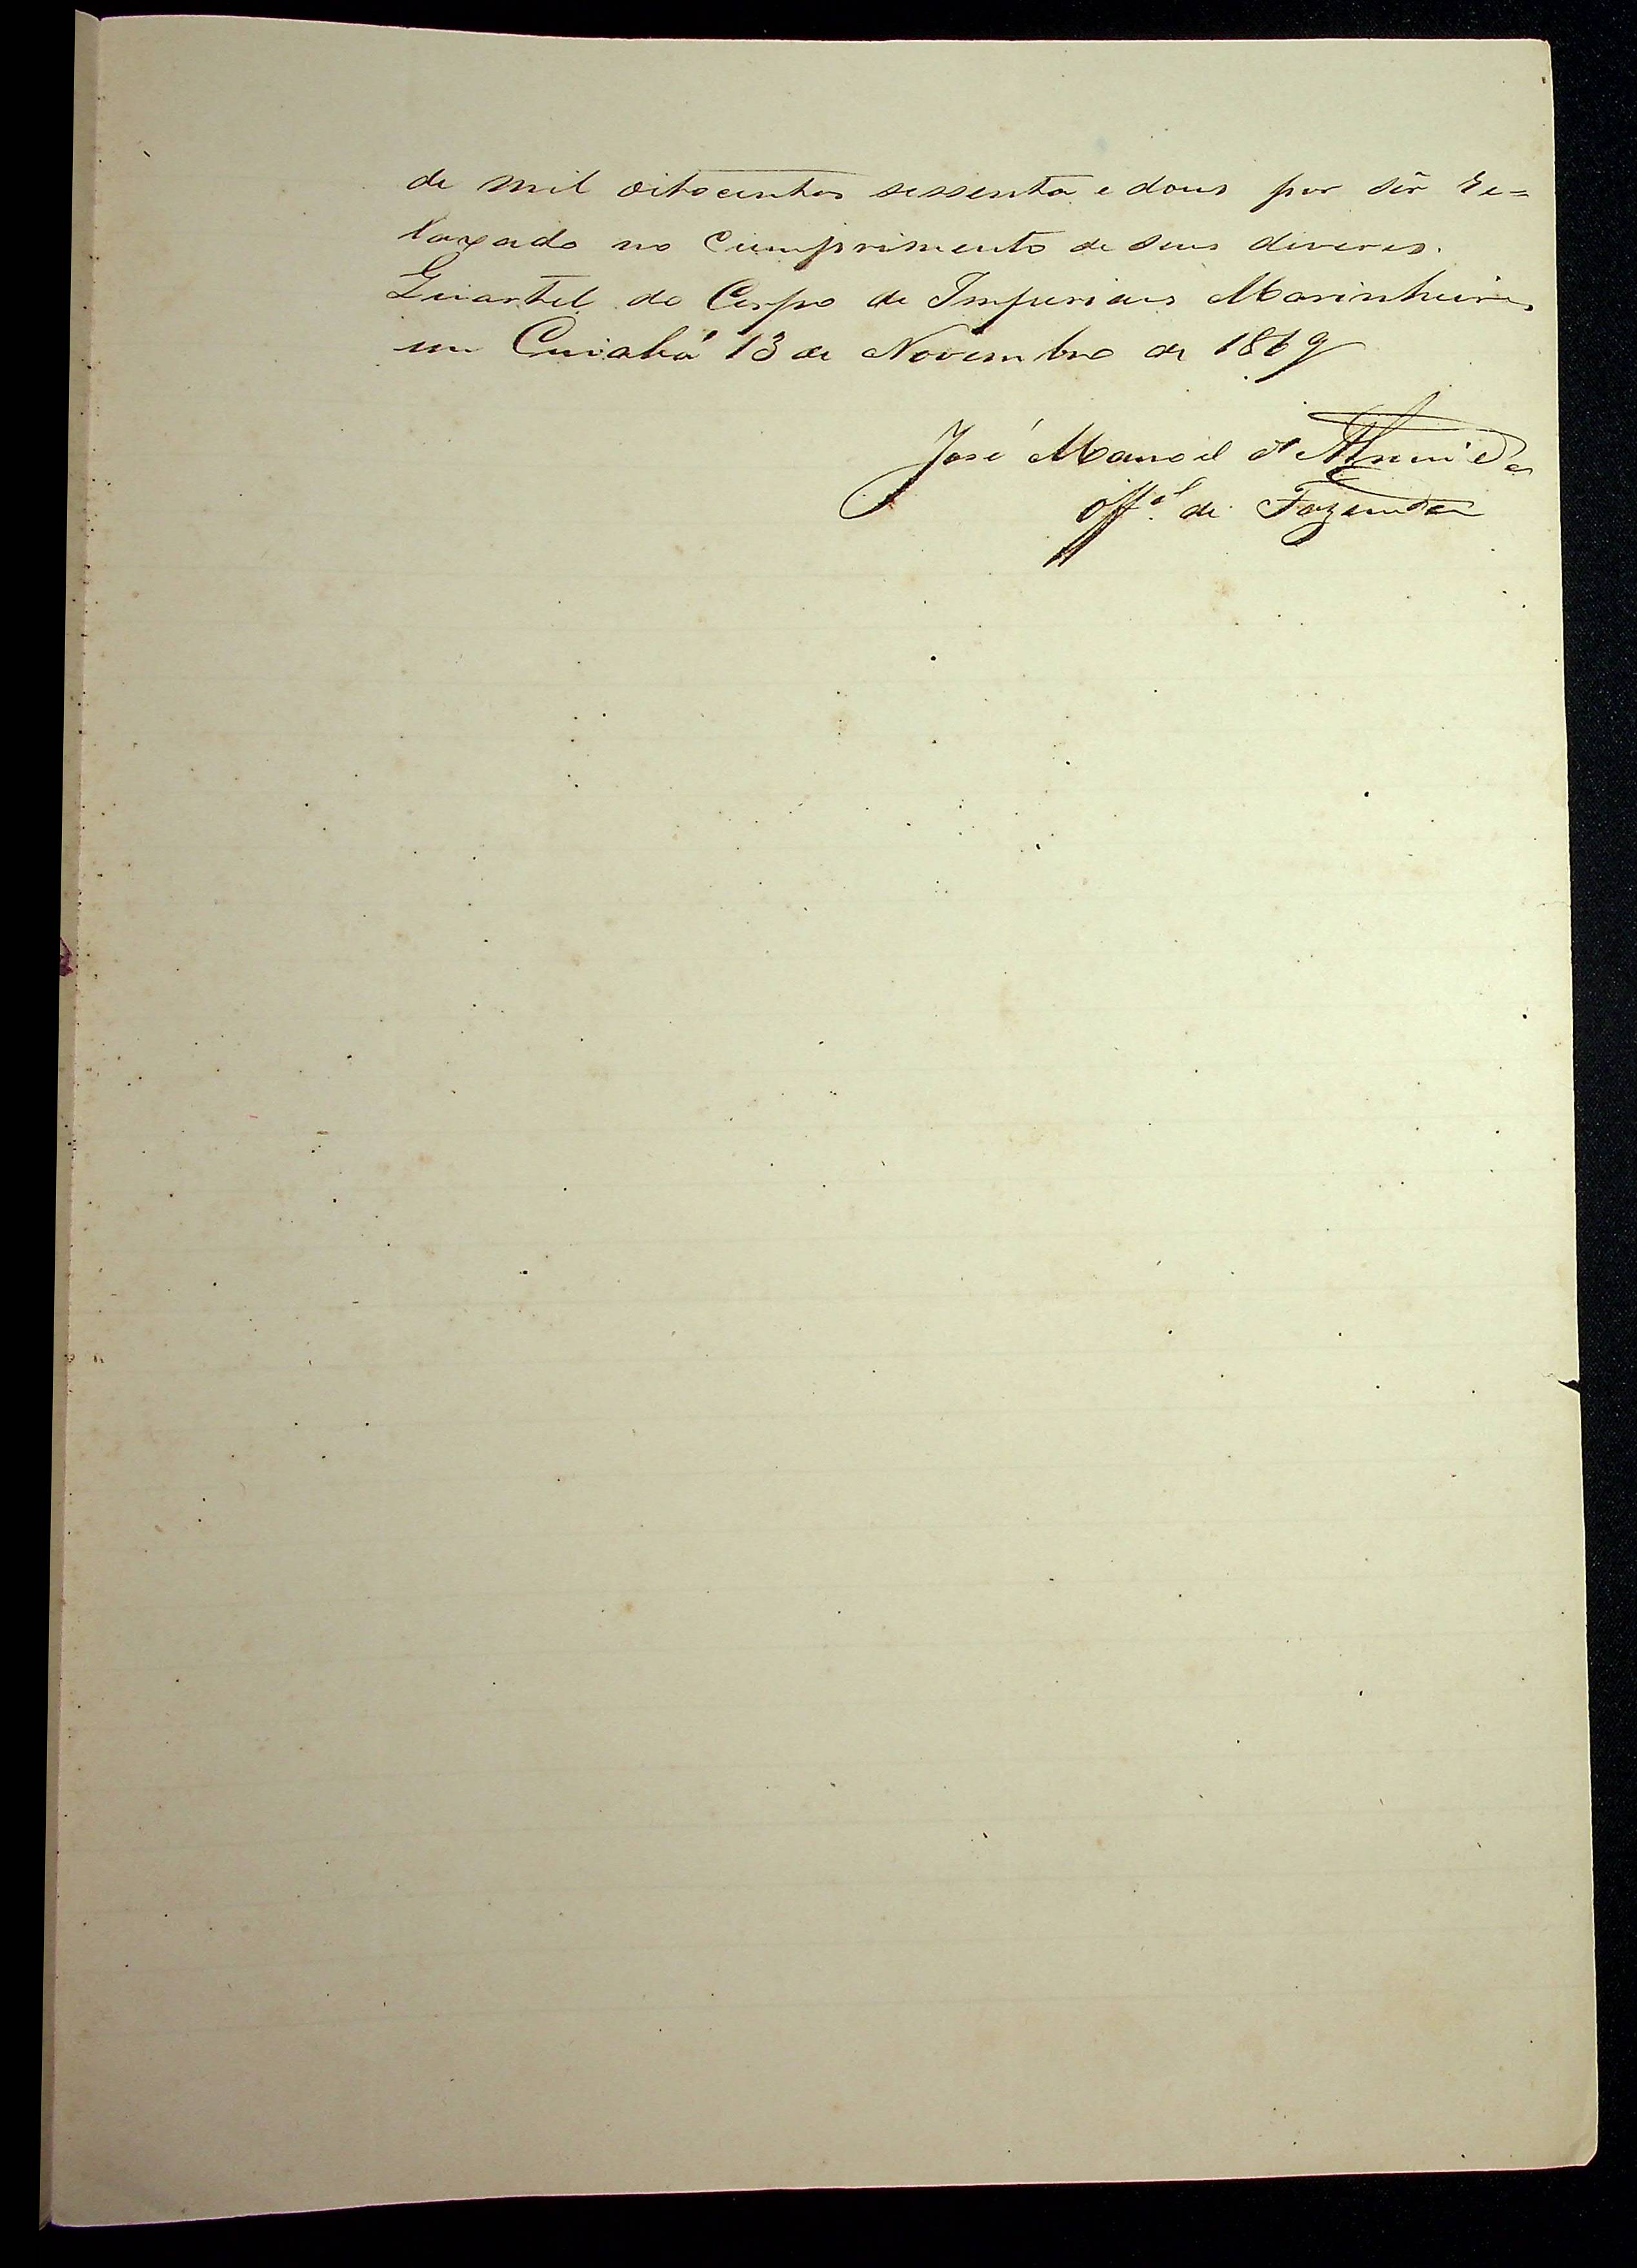 de mil oitocentos sessenta e dous por sêr re=
laxado no cumprimento de seus deveres.
Quartel do Corpo de Imperiaes Marinheiros
em Cuiabá 13 de Novembro de 1869
José Manoel d'Almeida
Off.al de Fazenda